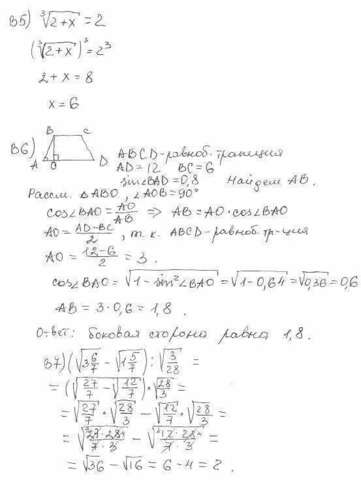 В5) ∛(2+x) = 2
(∛(2+x))³ = 2³
2 + x = 8
x = 6
В6)
B C
A O D
ABCD - равноб. трапеция
AD = 12 BC = 6
sin∠BAD = 0,8 Найдем AB.
Рассм. △ABO, ∠AOB = 90°
cos∠BAO = AO/AB ⇒ AB = AO · cos∠BAO
AO = (AD-BC)/2, т.к. ABCD - равноб. тр-ция
AO = (12-6)/2 = 3.
cos∠BAO = √(1 - sin²∠BAO) = √(1-0,64) = √0,36 = 0,6
AB = 3 · 0,6 = 1,8.
Ответ: боковая сторона равна 1,8.
В7) (√(3 6/7) - √(1 5/7)) : √(3/28) =
= (√(27/7) - √(12/7)) · √(28/3) =
= √(27/7) · √(28/3) - √(12/7) · √(28/3) =
= √(27·28/(7·3)) - √(12·28/(7·3)) =
= √36 - √16 = 6 - 4 = 2.